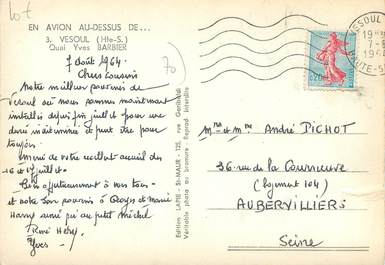 lot
EN AVION AU-DESSUS DE...
3. VESOUL (Hte-S.)
Quai Yves BARBIER
70
7 août 1964
Chers Cousins
Notre meilleur souvenir de
Vesoul où nous sommes maintenant
installés depuis fin juillet pour une
durée indéterminée et peut être pour
toujours.
Merci de votre
accueil des
16 et 17 juillet.
Bien affectueusement à vous tous
et notre bon souvenir à
et Marie
ainsi qu'au petit Michel
René
Yves
Edition LAPIE - St-MAUR - 125, rue Garibaldi
Véritable photo au bromure - Reprod. interdite
VESOUL
HTE-S
0,20
Mr et Mme André PICHOT
36 rue de la Courneuve
(logement 104)
AUBERVILLIERS
Seine